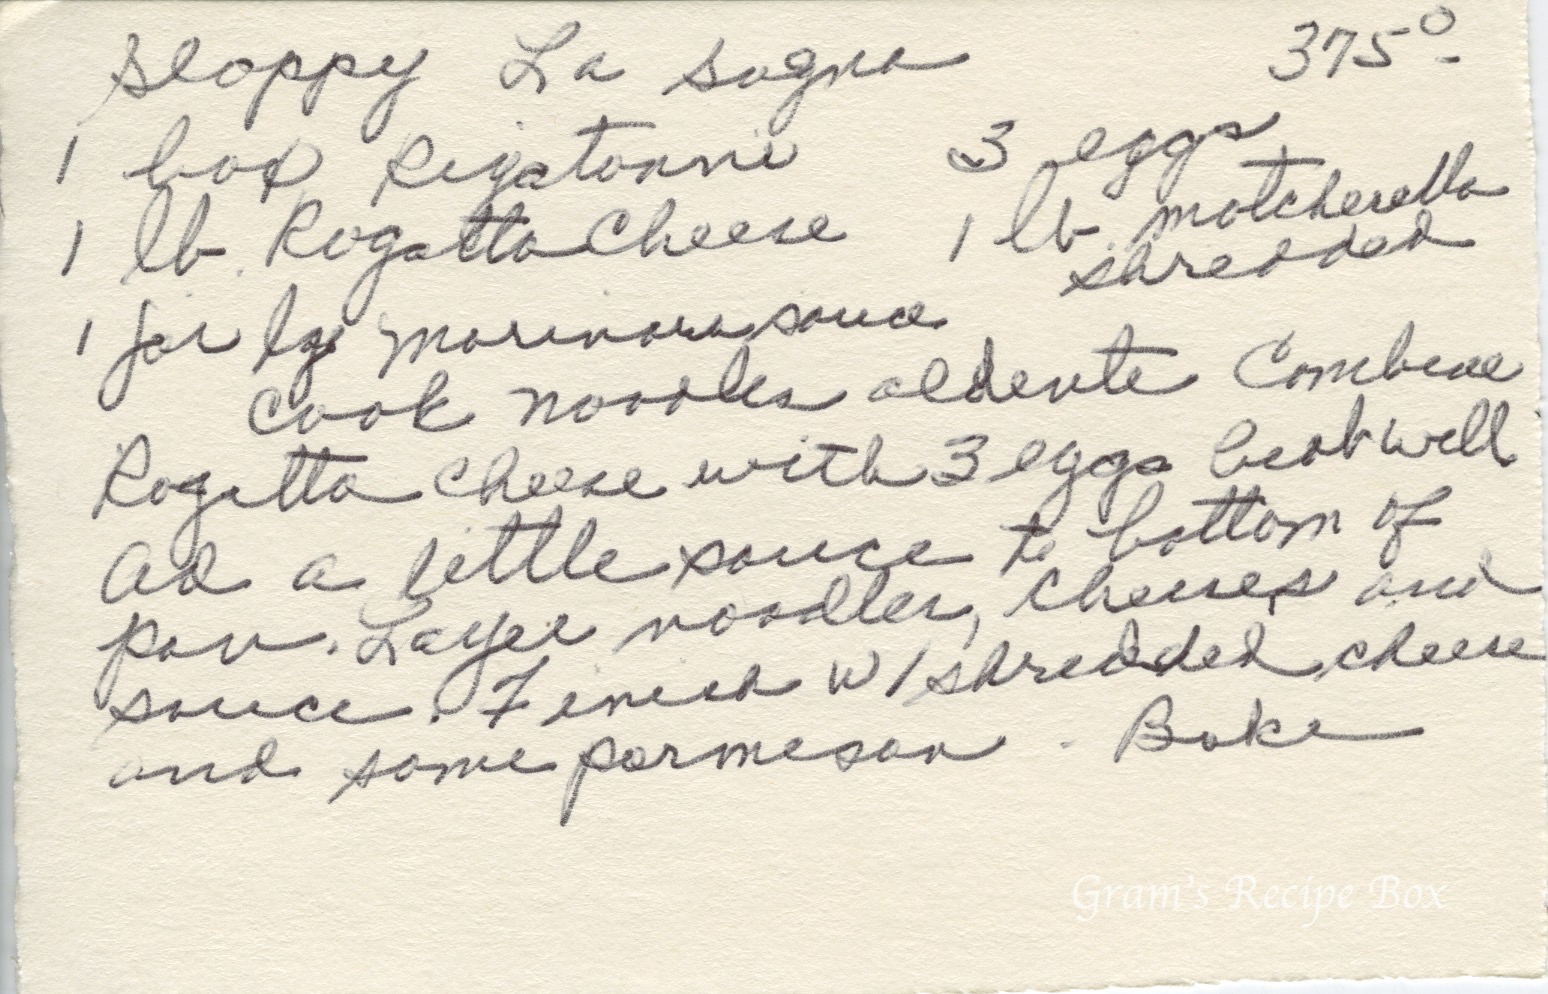 Sloppy La sagna 375°
1 box Rigatonni 3 eggs
1 lb. Rogatta Cheese 1 lb. motcherella
shredded
1 jar lg marinara sauce
Cook noodles aldente Combine
Rogatta cheese with 3 eggs beat well
Ad a little sauce to bottom of
pan. Layer noodles, cheeses and
sauce. Finish w/shredded cheese
and some parmesan. Bake
Gram's Recipe Box